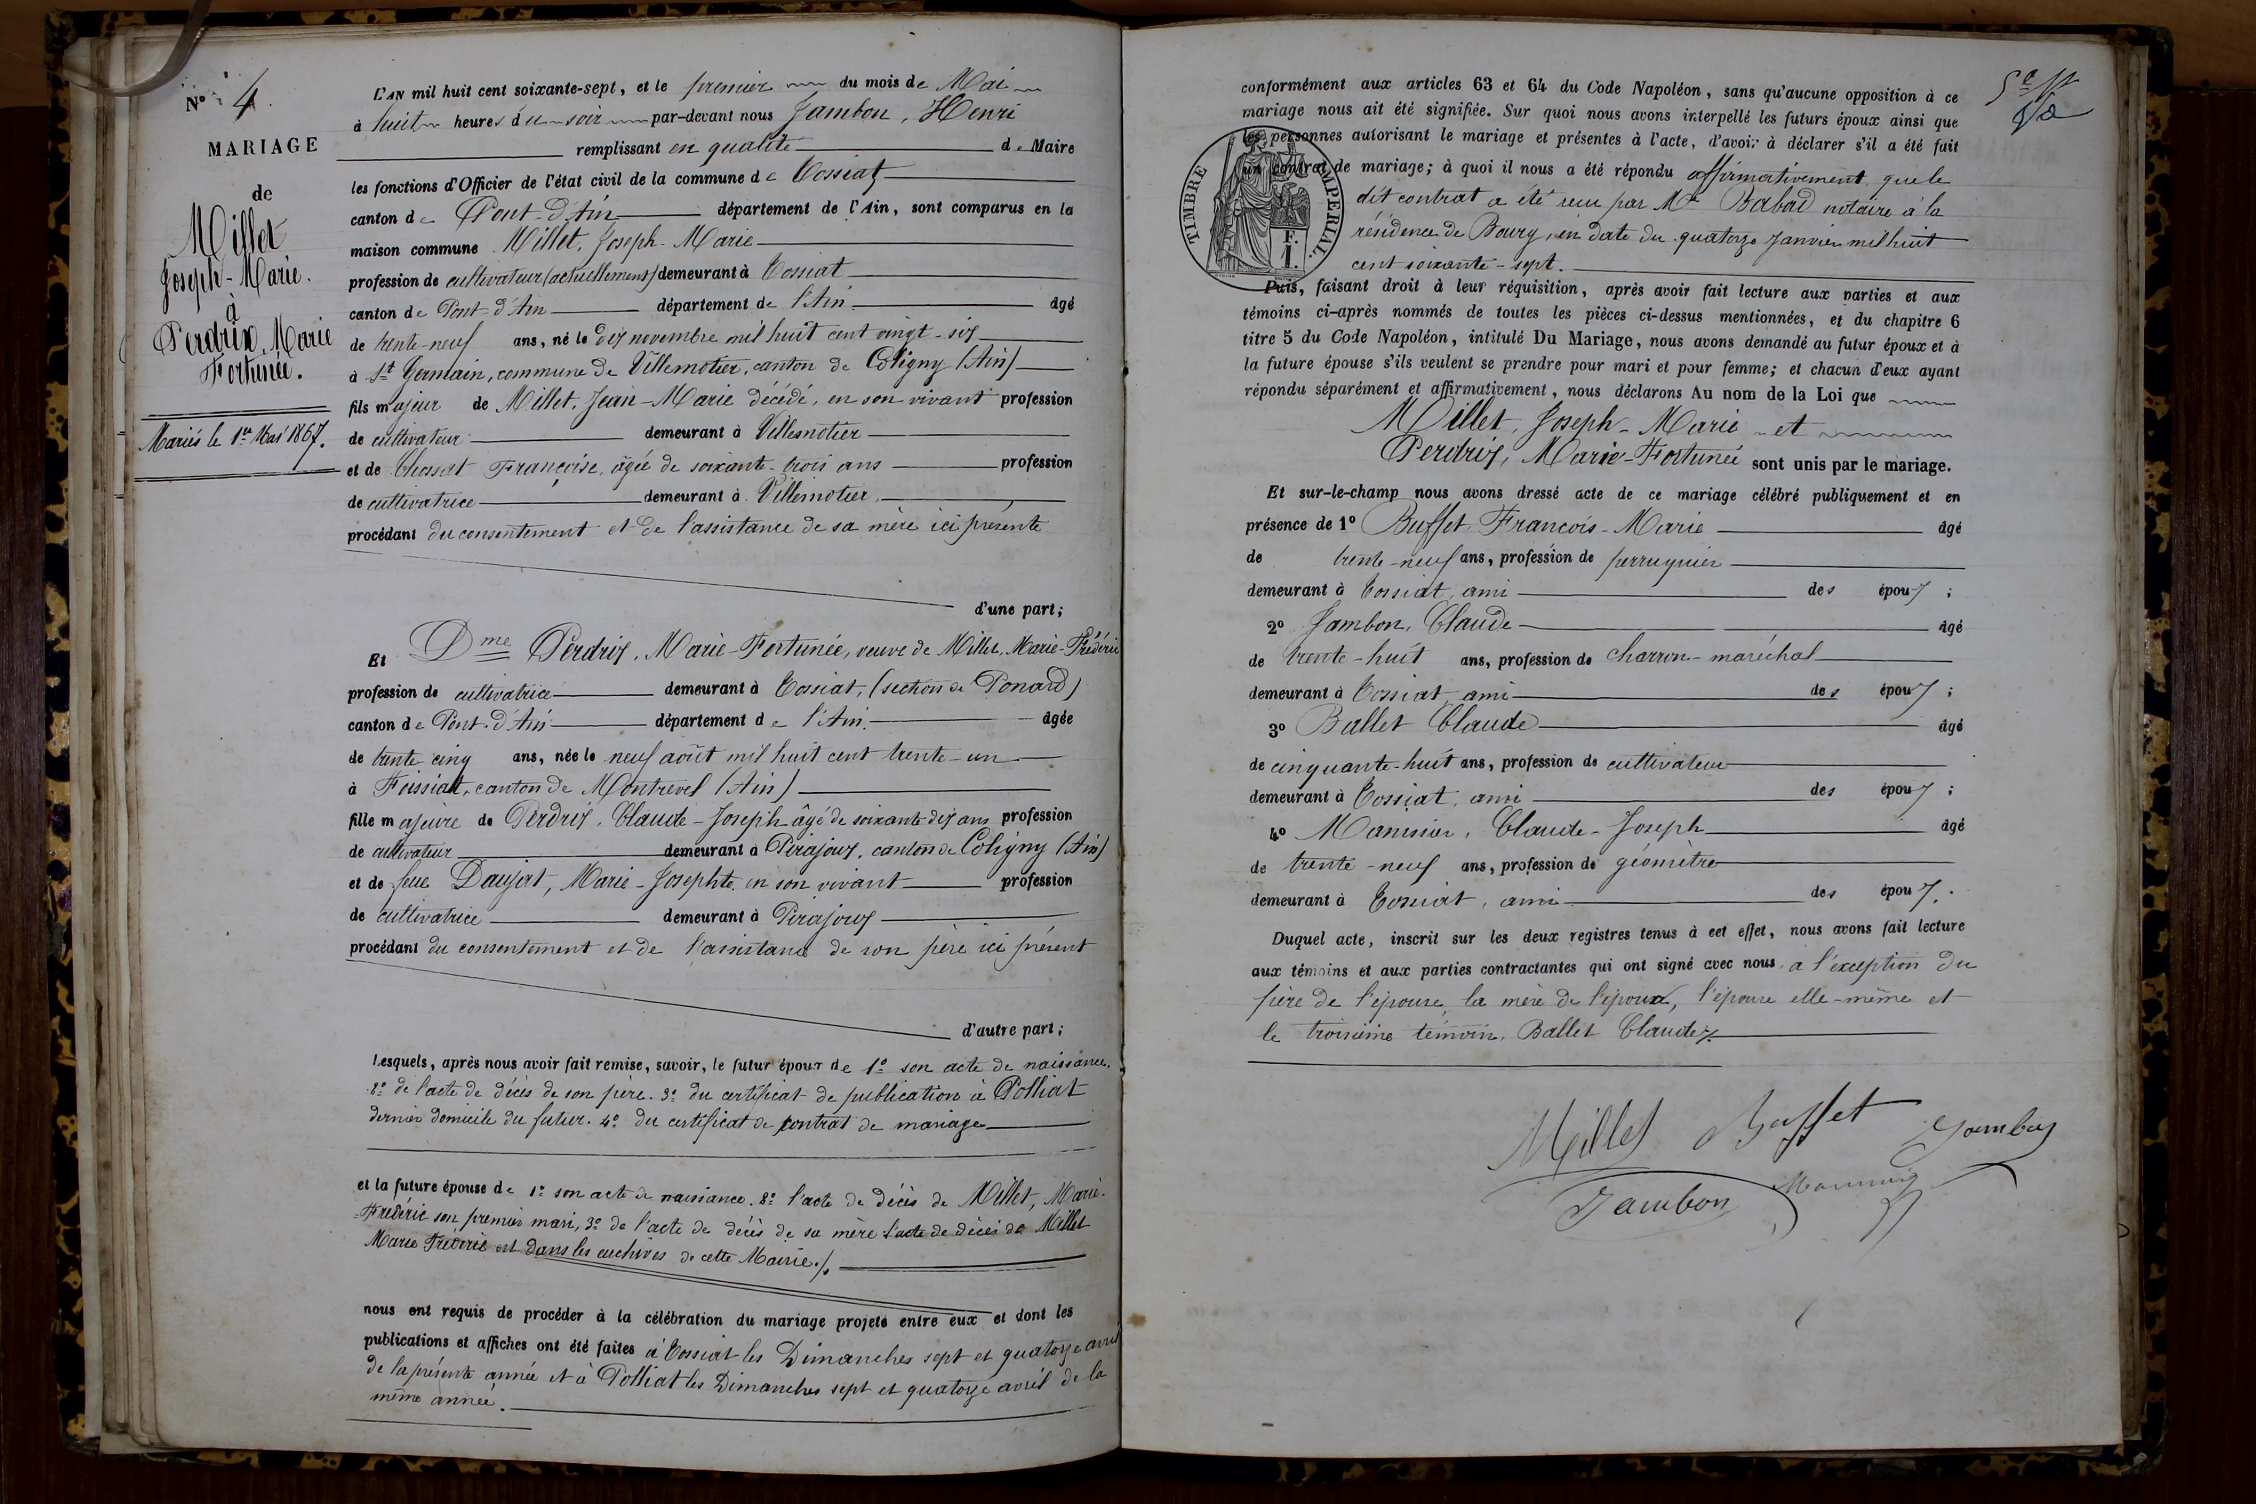 N° 4
MARIAGE
de
Millet
Joseph-Marie.
à
Perdrix, Marie
Fortunée.
Mariés le 1er Mai 1867.
L'AN mil huit cent soixante-sept, et le premier du mois de Mai
à huit heures du soir par-devant nous Jambon, Henri
remplissant en qualité de Maire
les fonctions d'Officier de l'état civil de la commune de Tossiat
canton de Pont-d'Ain département de l'Ain, sont comparus en la
maison commune Millet, Joseph-Marie
profession de cultivateur (actuellement) demeurant à Tossiat
canton de Pont-d'Ain département de l'Ain âgé
de trente-neuf ans, né le dix novembre mil huit cent vingt-six
à St Germain, commune de Villemotier, canton de Coligny (Ain)
fils majeur de Millet, Jean-Marie décédé, en son vivant profession
de cultivateur demeurant à Villemotier
et de Chossat Françoise, âgée de soixante-trois ans profession
de cultivatrice demeurant à Villemotier
procédant du consentement et de l'assistance de sa mère ici présente
d'une part;
Et Dme Perdrix, Marie-Fortunée, veuve de Millet, Marie-Frédéric
profession de cultivatrice demeurant à Tossiat, (section de Ponard)
canton de Pont-d'Ain département de l'Ain. âgée
de trente cinq ans, née le neuf août mil huit cent trente-un
à Foissiat, canton de Montrevel (Ain)
fille majeure de Perdrix, Claude-Joseph âgé de soixante dix ans profession
de cultivateur demeurant à Pirajoux, canton de Coligny (Ain)
et de feue Daujat, Marie-Josephte en son vivant profession
de cultivatrice demeurant à Pirajoux
procédant du consentement et de l'assistance de son père ici présent
d'autre part;
Lesquels, après nous avoir fait remise, savoir, le futur époux de 1° son acte de naissance.
2° de l'acte de décès de son père. 3° du certificat de publication à Polliat
dernier domicile du futur. 4° du certificat de contrat de mariage
et la future épouse de 1° son acte de naissance. 2° l'acte de décès de Millet, Marie-
Frédéric son premier mari, 3° de l'acte de décès de sa mère l'acte de décès de Millet
Marie Frédéric est dans les archives de cette Mairie./.
nous ont requis de procéder à la célébration du mariage projeté entre eux et dont les
publications et affiches ont été faites à Tossiat les Dimanches sept et quatorze avril
de la présente année et à Polliat les Dimanches sept et quatorze avril de la
même année.
conformément aux articles 63 et 64 du Code Napoléon, sans qu'aucune opposition à ce
mariage nous ait été signifiée. Sur quoi nous avons interpellé les futurs époux ainsi que
les personnes autorisant le mariage et présentes à l'acte, d'avoir à déclarer s'il a été fait
un contrat de mariage; à quoi il nous a été répondu affirmativement que le
dit contrat a été reçu par Me Babad notaire à la
résidence de Bourg, en date du quatorze Janvier mil huit
cent soixante-sept.
TIMBRE IMPERIAL.
F.
1.
Puis, faisant droit à leur réquisition, après avoir fait lecture aux parties et aux
témoins ci-après nommés de toutes les pièces ci-dessus mentionnées, et du chapitre 6
titre 5 du Code Napoléon, intitulé Du Mariage, nous avons demandé au futur époux et à
la future épouse s'ils veulent se prendre pour mari et pour femme; et chacun d'eux ayant
répondu séparément et affirmativement, nous déclarons Au nom de la Loi que
Millet, Joseph-Marie et
Perdrix, Marie-Fortunée sont unis par le mariage.
Et sur-le-champ nous avons dressé acte de ce mariage célébré publiquement et en
présence de 1° Buffet François-Marie âgé
de trente-neuf ans, profession de perruquier
demeurant à Tossiat, ami des époux;
2° Jambon, Claude âgé
de trente-huit ans, profession de charron-maréchal
demeurant à Tossiat, ami des époux;
3° Ballet Claude âgé
de cinquante-huit ans, profession de cultivateur
demeurant à Tossiat, ami des époux;
4° Manissier, Claude-Joseph âgé
de trente-neuf ans, profession de géomètre
demeurant à Tossiat, ami des époux.
Duquel acte, inscrit sur les deux registres tenus à cet effet, nous avons fait lecture
aux témoins et aux parties contractantes qui ont signé avec nous, à l'exception du
père de l'épouse, la mère de l'époux, l'épouse elle-même et
le troisième témoin, Ballet Claude.
Millet Buffet Jambon
Jambon